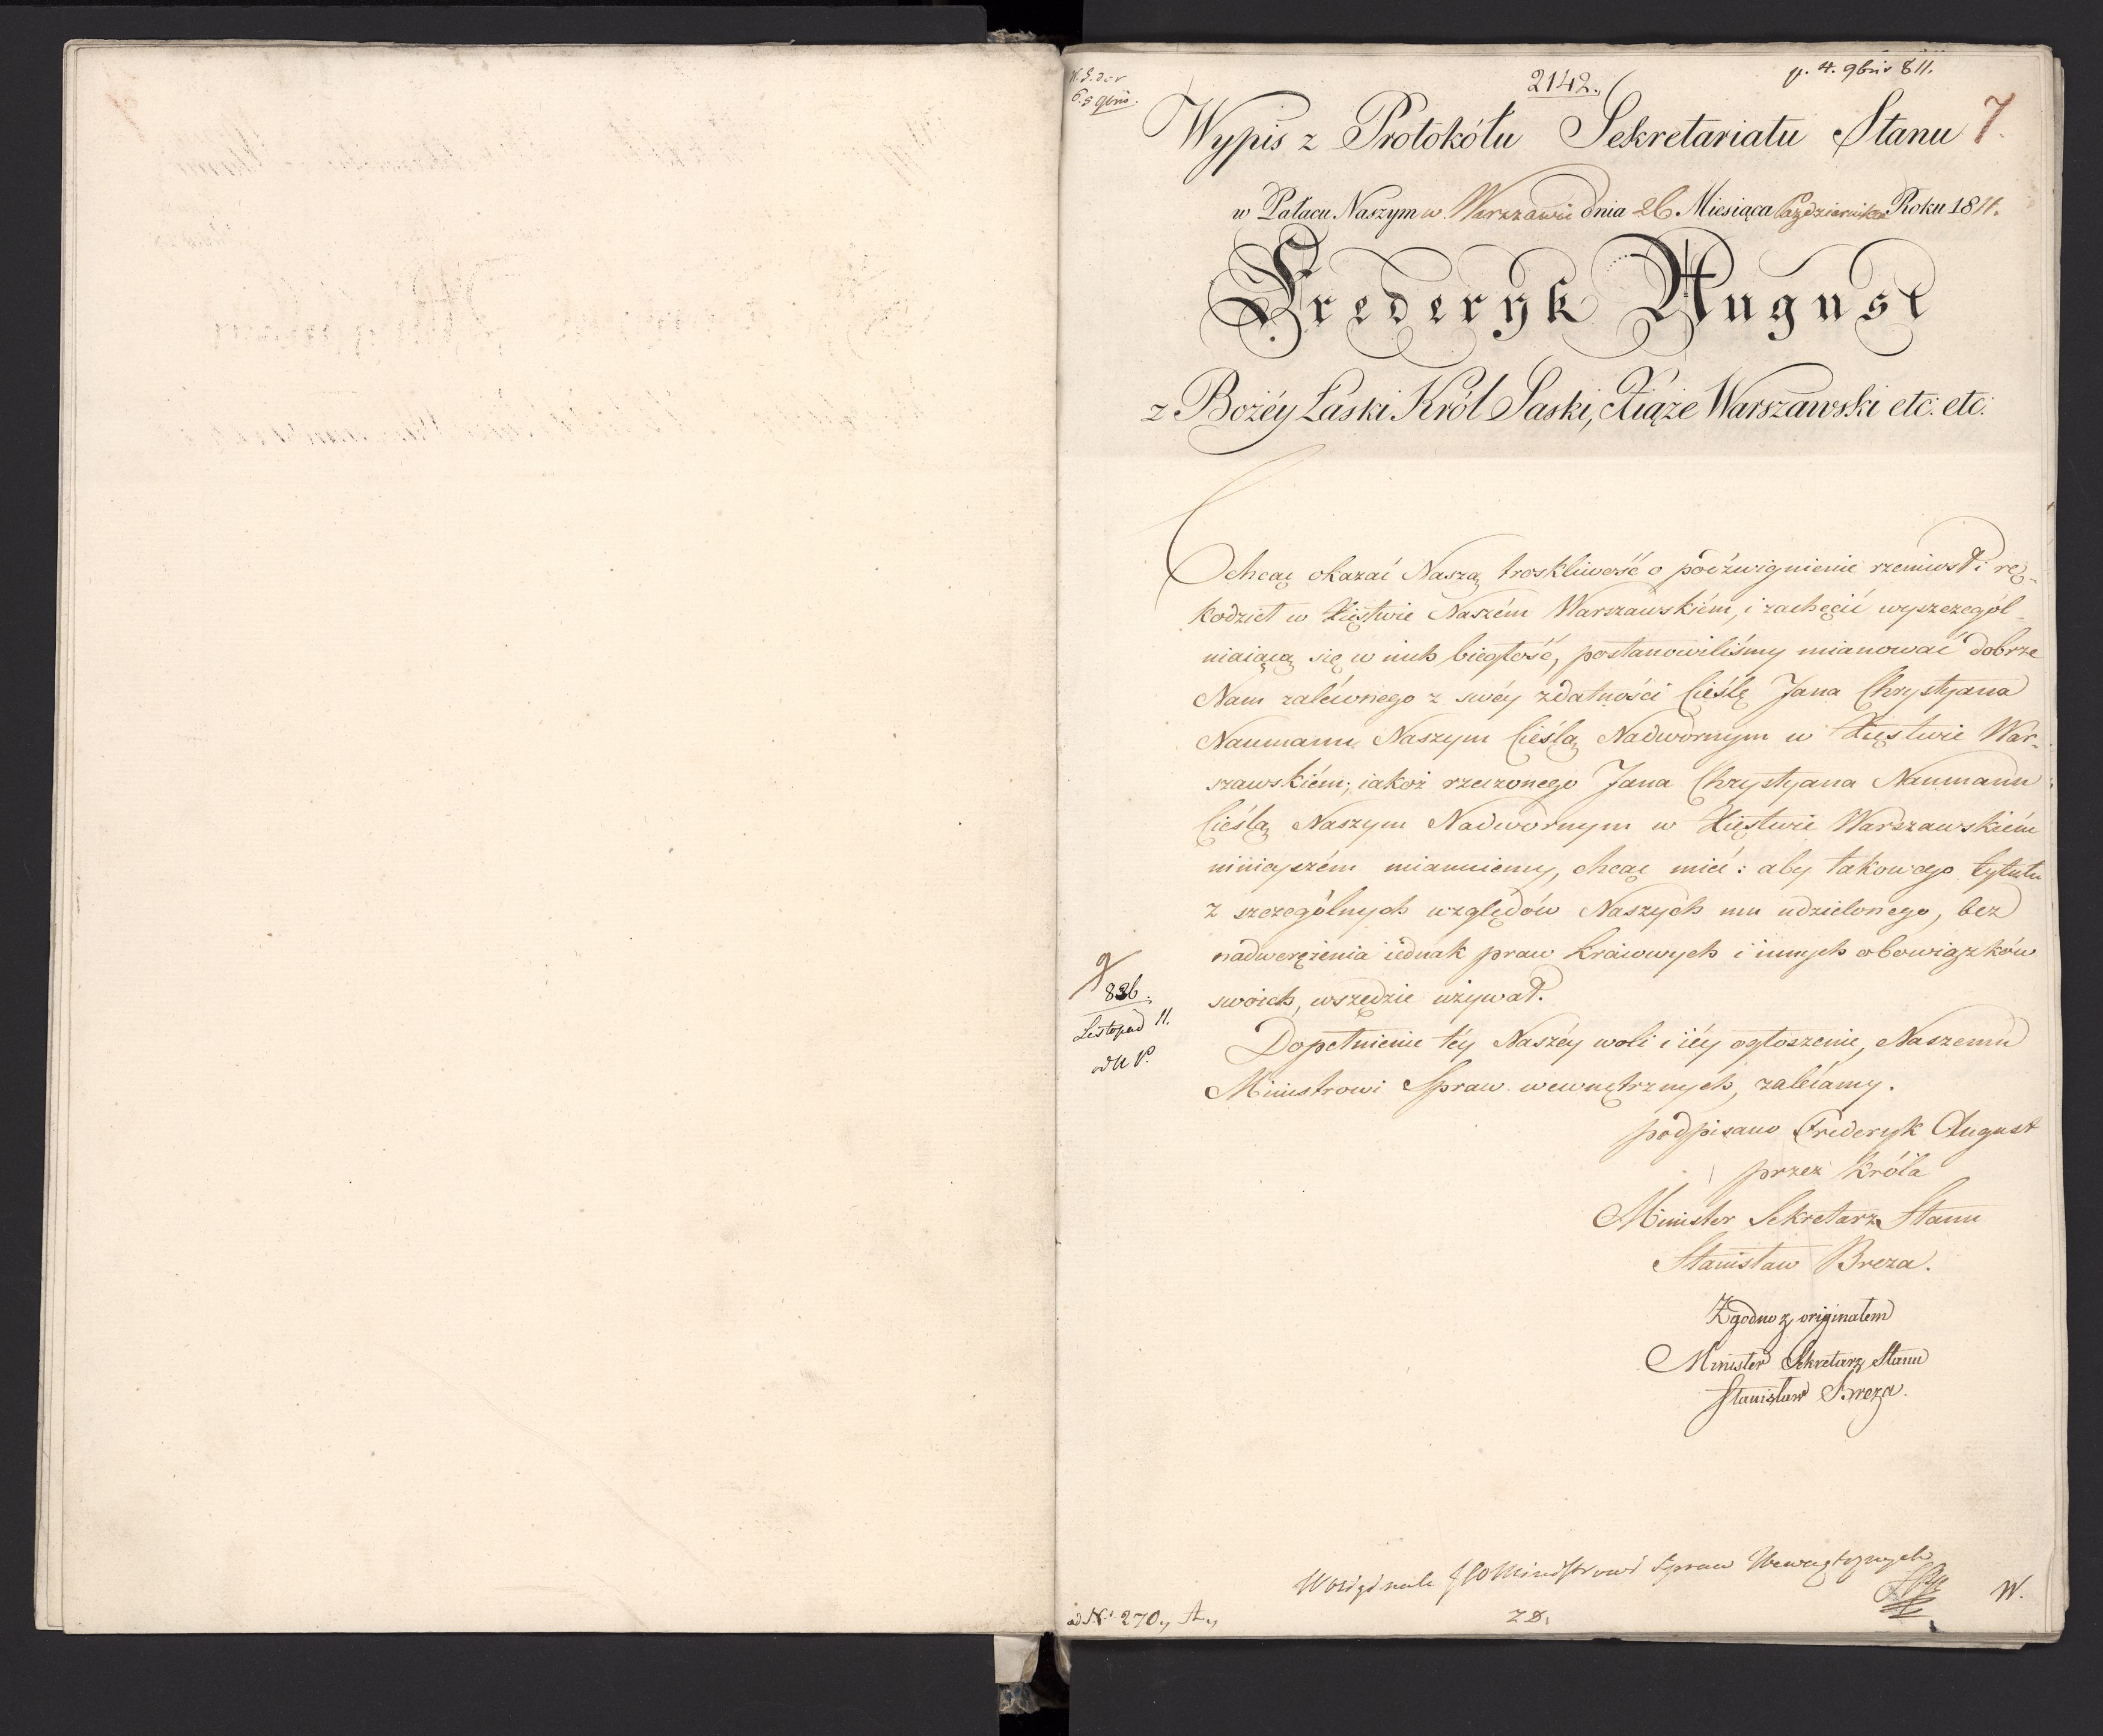 2142.
p. 4. 9bris 811.
7.
Wypis z Protokółu Sekretariatu Stanu
w Pałacu Naszym w Warszawie dnia 26 Miesiąca Października Roku 1811.
Frederyk August
z Bożéy Łaski Król Saski, Xiąże Warszawski etc: etc:
Chcąc okazać Naszą troskliwość o podźwignienie rzemiosł i rę-
kodzieł w Xięstwie Naszém Warszawskiém, i zachęcić wyszczegól-
niaiącą się w nich biegłość, postanowiliśmy mianować dobrze
Nam zaleconego z swéy zdatności Cieślę Jana Chrystyana
Naumann Naszym Cieślą Nadwornym w Xięstwie War-
szawskiém; iakoż rzeczonego Jana Chrystyana Naumann
Cieślą Naszym Nadwornym w Xięstwie Warszawskiém
ninieyszém mianuiemy, chcąc mieć: aby takowego tytułu
z szczególnych względów Naszych mu udzielonego, bez
nadwerężenia iednak praw kraiowych i innych obowiązków
swoich, wszędzie używał.
836.
Listopad 11.
Dopełnienie téy Naszéy woli i iéy ogłoszenie, Naszemu
Ministrowi Spraw wewnętrznych, zalecamy.
podpisano Frederyk August
przez Króla
Minister Sekretarz Stanu
Stanisław Breza.
Zgodno z originałem
Minister Sekretarz Stanu
Stanisław Breza.
W originale JW Ministrowi Spraw Wewnętrznych
W.
ad Nr. 270., A.,